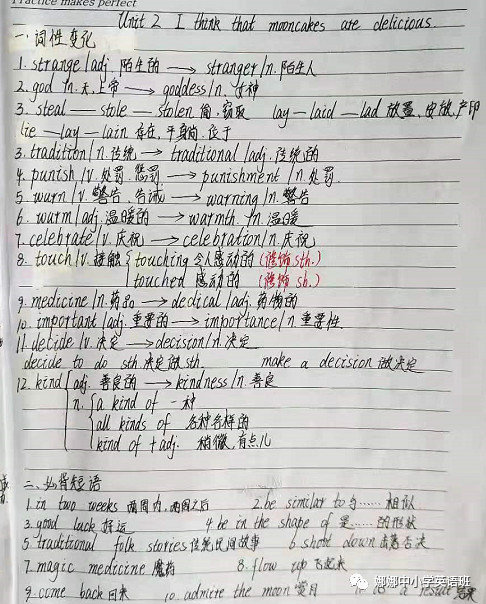 Practice makes perfect
Unit 2 I think that mooncakes are delicious.
一.词性变化
1. strange/adj. 陌生的 → stranger/n. 陌生人
2. god /n.天,上帝 → goddess/n. 女神
3. steal — stole — stolen 偷,窃取 lay — laid — lad 放置、皮放,产卵
lie — lay — lain 存在,平躺,位于
3. tradition/n.传统 → traditional/adj.传统的
4. punish/v.处罚.惩罚 → punishment/n.处罚.
5. warn/v.警告、告诫 → warning/n.警告
6. warm/adj.温暖的 → warmth/n.温暖
7. celebrate/v.庆祝 → celebration/n.庆祝
8. touch/v.接触 touching 令人感动的 (修饰sth.)
touched 感动的 (修饰sb.)
9. medicine/n.药品 → dedical/adj.药物的
10. important/adj.重要的 → importance/n.重要性.
11. decide/v.决定 → decision/n.决定
decide to do sth 决定做sth. make a decision 做决定
12. kind adj. 善良的 → kindness/n.善良
n. a kind of 一种
all kinds of 各种各样的
kind of +adj. 稍微,有点儿
二.必背短语
1. in two weeks 两周内,两周之后 2. be similar to 与……相似
3. good luck 好运 4. be in the shape of 是……的形状
5. traditional folk stories 传统民间故事 6. shoot down 击落
7. magic medicine 魔药 8. flow up 飞起来
9. come back 回来 10. admire the moon 赏月 as a result
娜娜中小学英语班